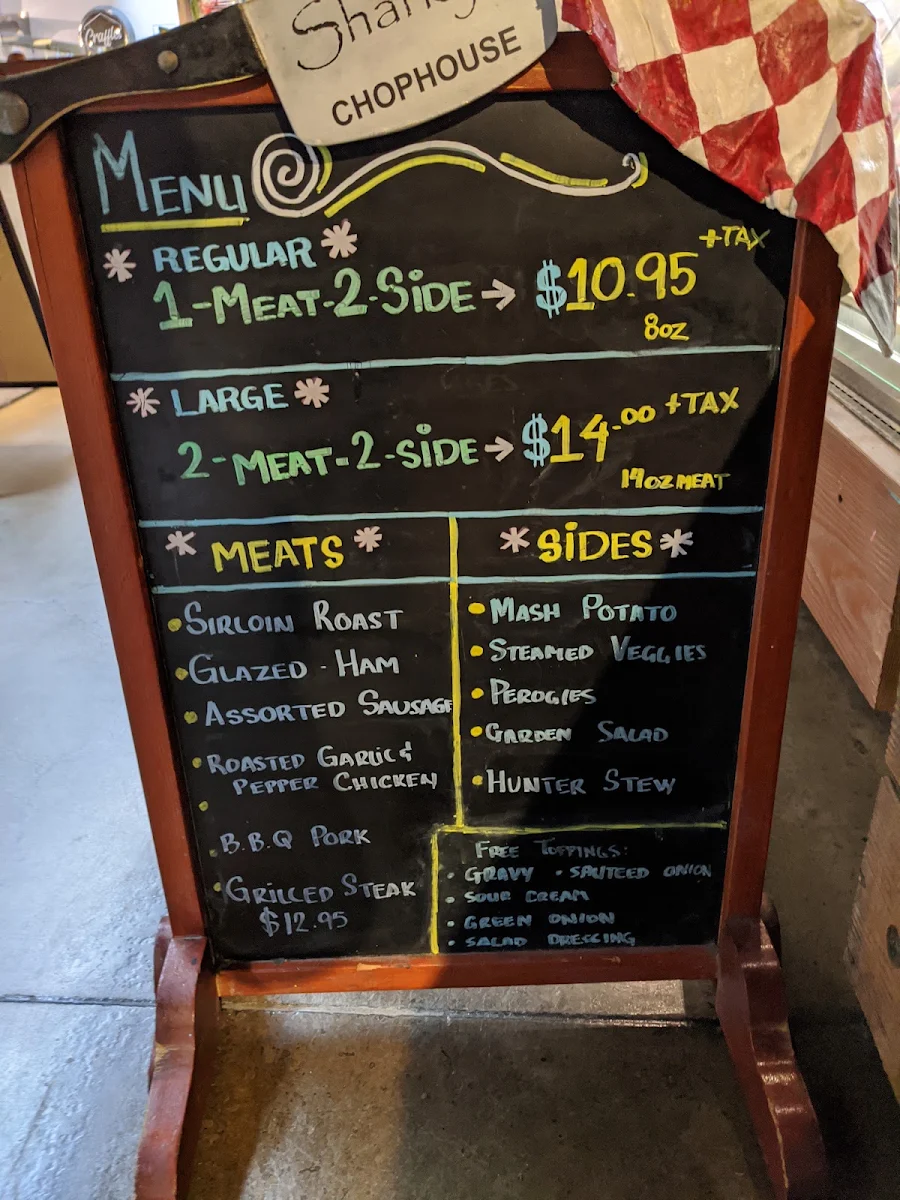 CHOPHOUSE
MENU
* REGULAR *
1-MEAT-2-SIDE → $10.95 +TAX
8oz
* LARGE *
2-MEAT-2-SIDE → $14.00 +TAX
14oz MEAT
* MEATS *
• SIRLOIN ROAST
• GLAZED - HAM
• ASSORTED SAUSAGE
• ROASTED GARLIC &
PEPPER CHICKEN
•
• B.B.Q PORK
• GRILLED STEAK
$12.95
* SIDES *
• MASH POTATO
• STEAMED VEGGIES
• PEROGIES
• GARDEN SALAD
• HUNTER STEW
FREE TOPPINGS:
• GRAVY • SAUTEED ONION
• SOUR CREAM
• GREEN ONION
• SALAD DRESSING